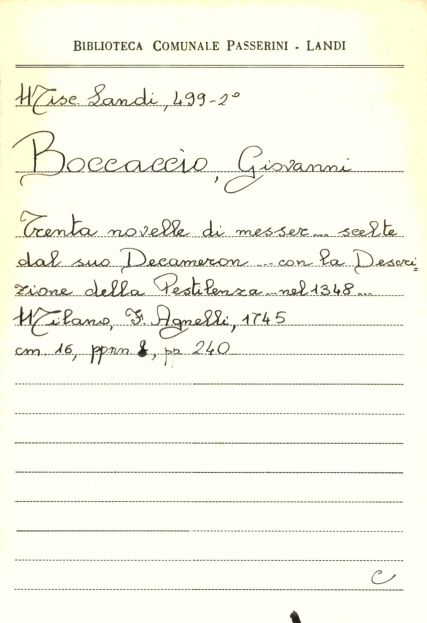 BIBLIOTECA COMUNALE PASSERINI - LANDI
Misc. Landi, 499-2°
Boccaccio, Giovanni
Trenta novelle di messer... scelte
dal suo Decameron ... con la Descri=
zione della Pestilenza... nel 1348...
Milano, F. Agnelli, 1745
cm. 16, ppnn 8, pp. 240
C